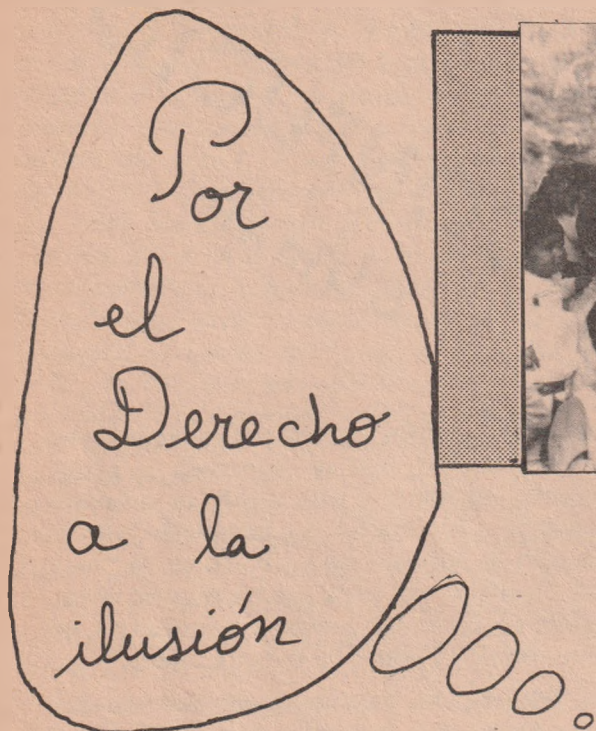 Por
el
Derecho
a la
ilusión